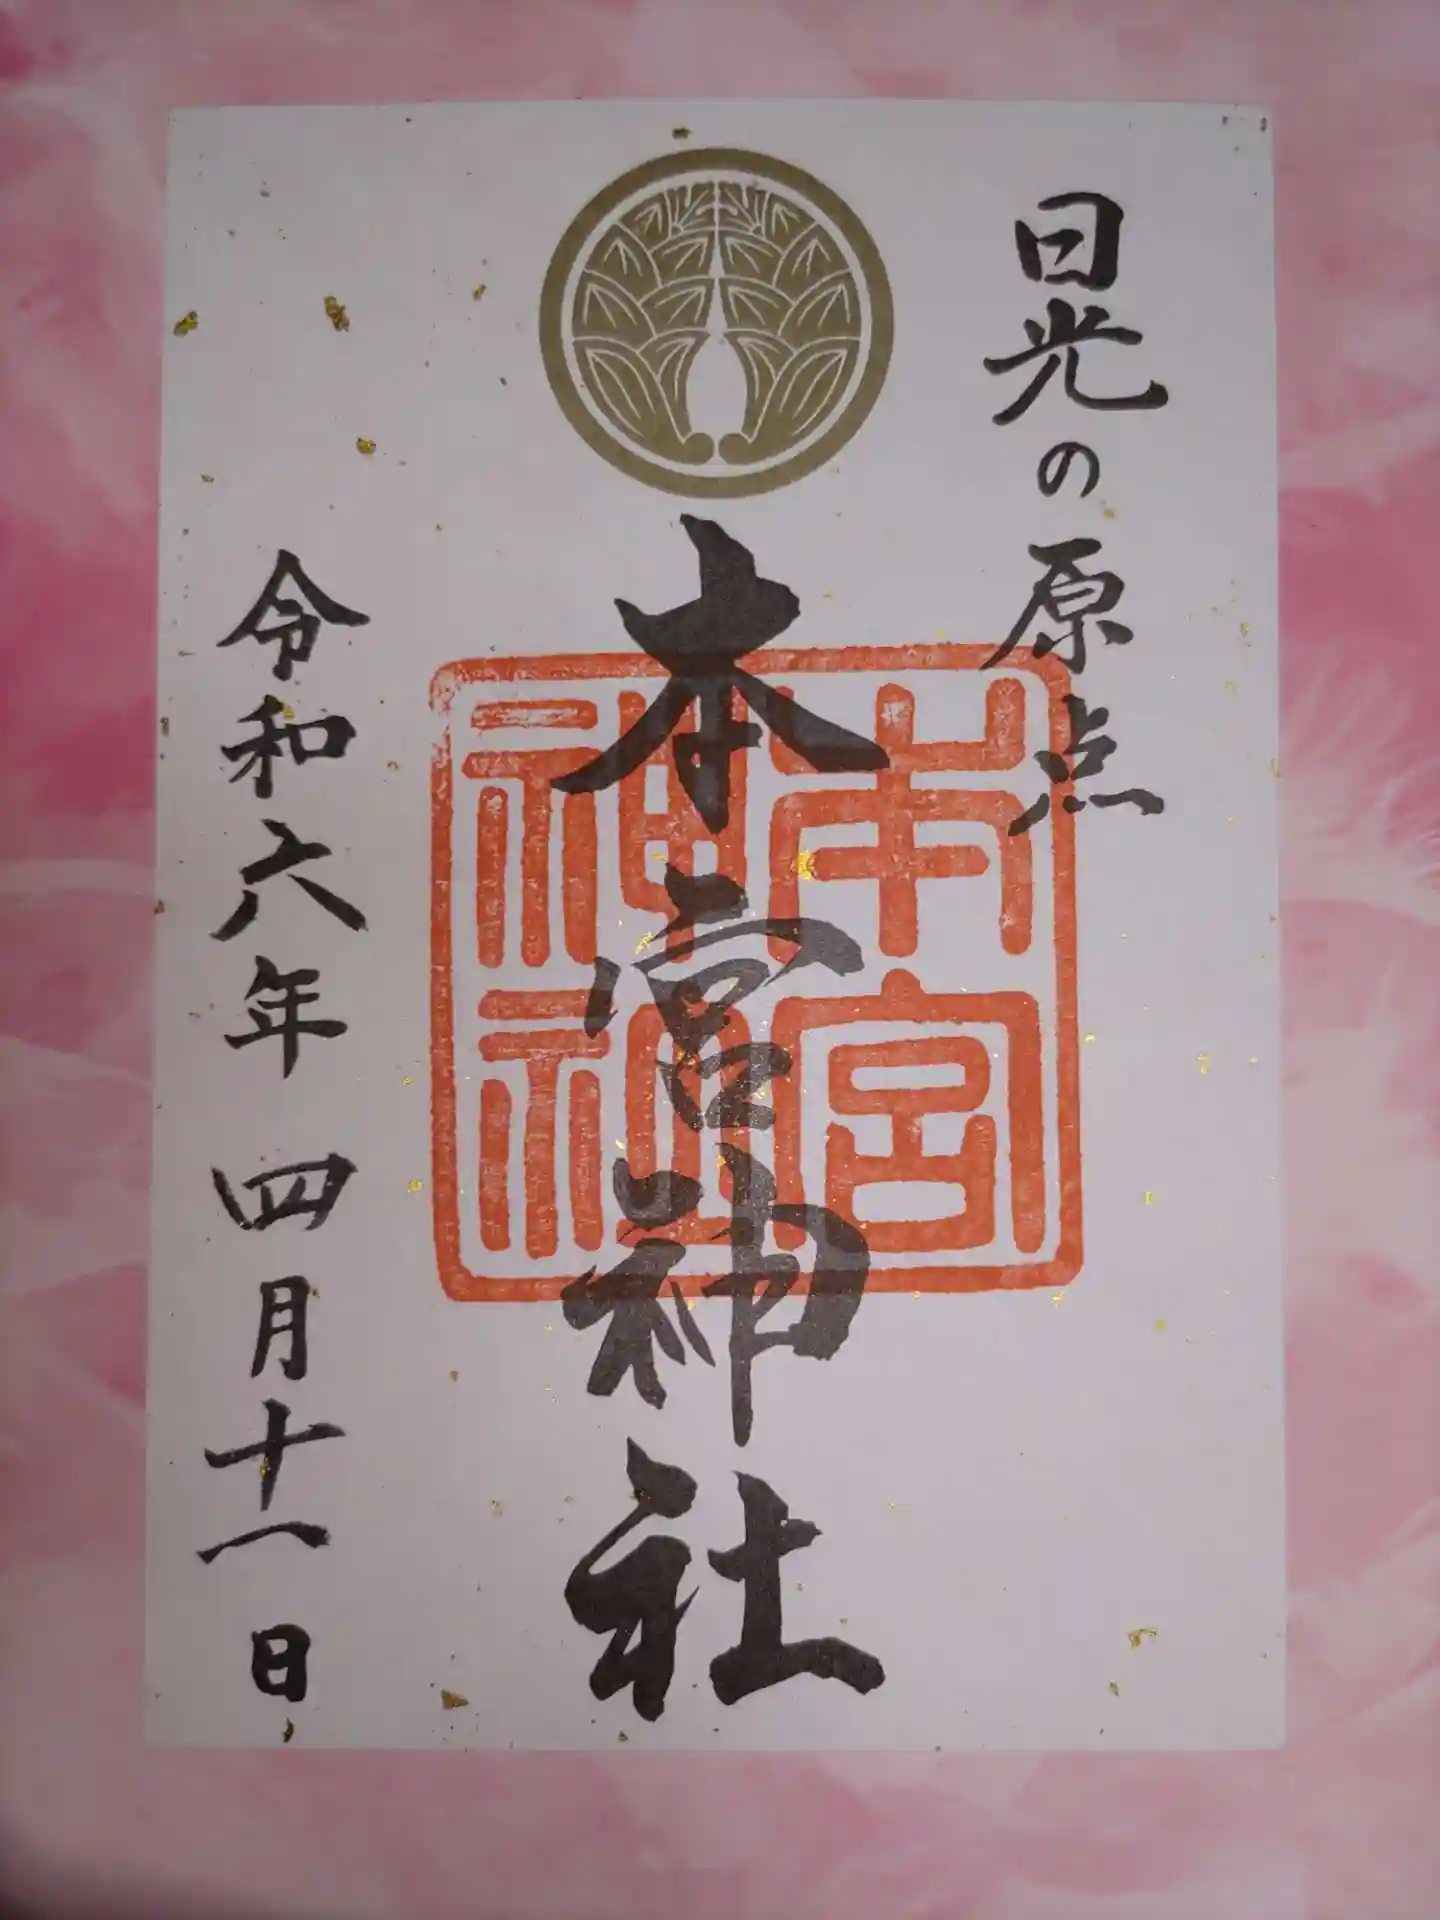 日光の原点
本宮神社
本宮
神社
令和六年四月十一日